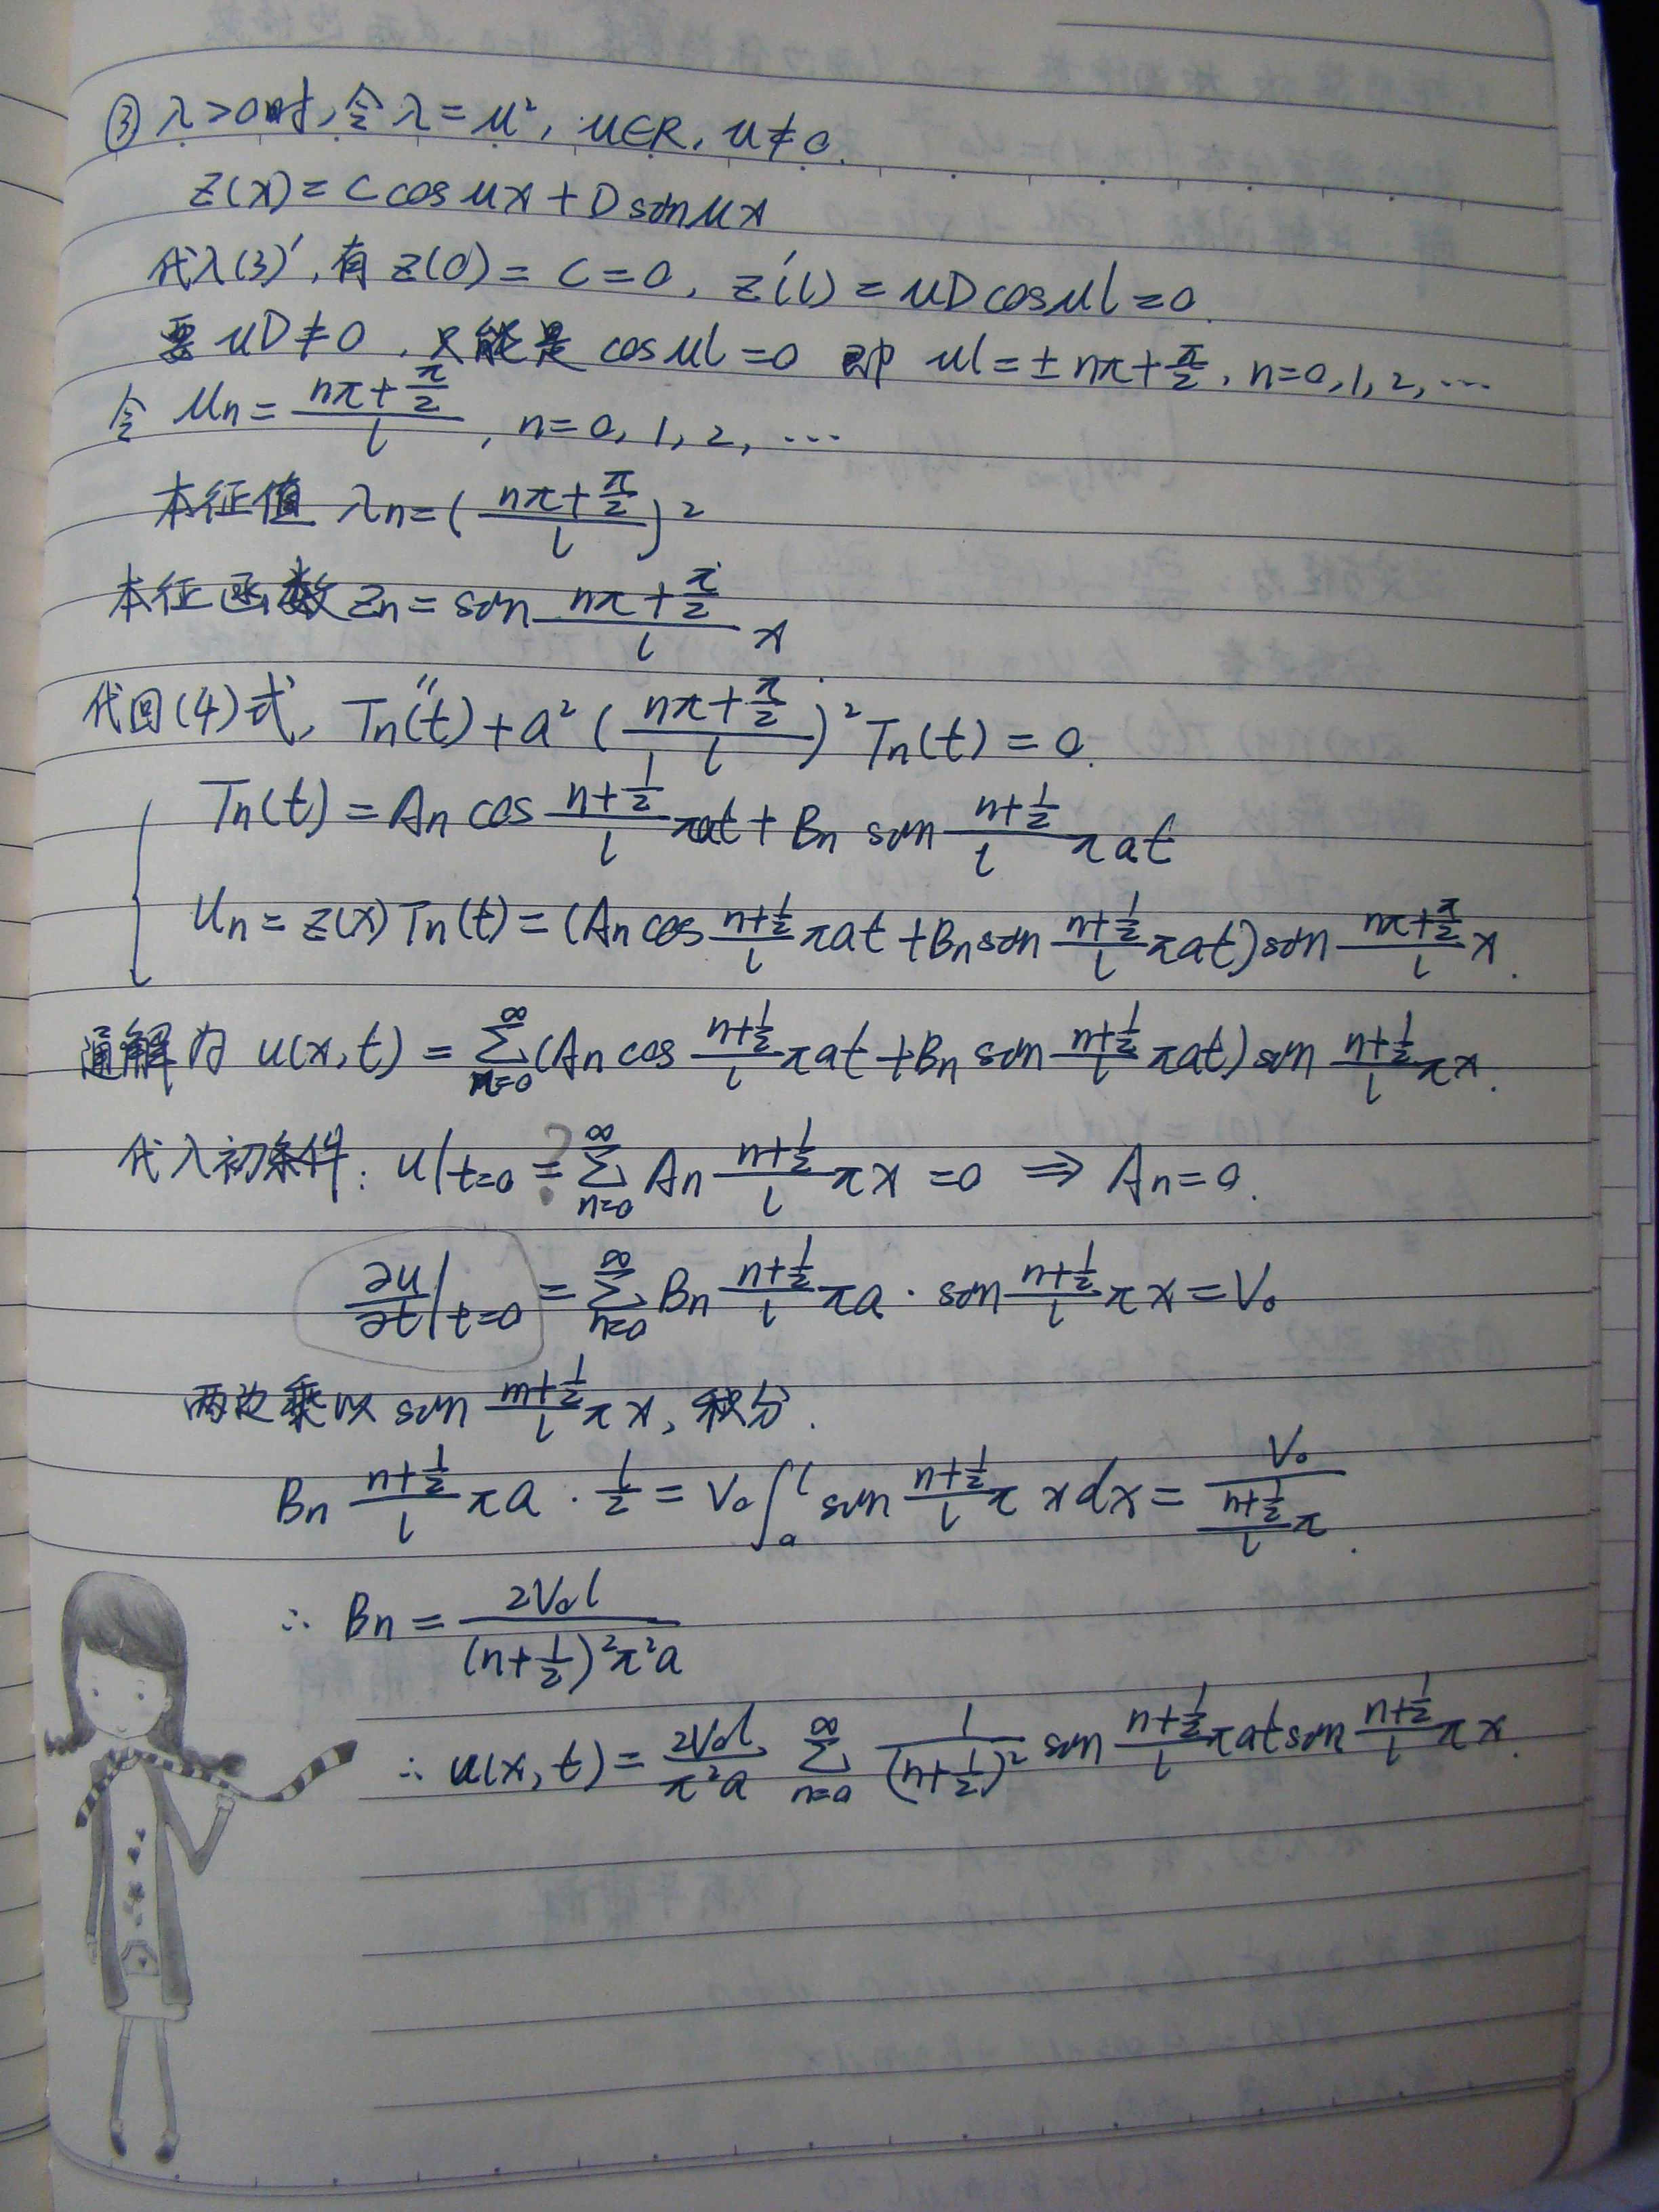 ③ λ>0时,令λ=μ², μ∈R, μ≠0.
Z(x)=C cosμx+D sinμx
代入(3)′,有 Z(0)=C=0, Z′(l)=μD cosμl=0.
要μD≠0,只能是 cosμl=0 即 μl=±nπ+π/2, n=0,1,2,…
令 μn=(nπ+π/2)/l, n=0,1,2,…
本征值 λn=((nπ+π/2)/l)²
本征函数 Zn=sin (nπ+π/2)/l x
代回(4)式, Tn″(t)+a²((nπ+π/2)/l)²Tn(t)=0.
Tn(t)=An cos (n+1/2)/l πat+Bn sin (n+1/2)/l πat
Un=Z(x)Tn(t)=(An cos (n+1/2)/l πat+Bn sin (n+1/2)/l πat) sin (nπ+π/2)/l x.
通解为 u(x,t)=∑_{n=0}^{∞}(An cos (n+1/2)/l πat+Bn sin (n+1/2)/l πat) sin (n+1/2)/l πx.
代入初条件: u|t=0 ?=∑_{n=0}^{∞} An (n+1/2)/l πx=0 ⇒ An=0.
∂u/∂t|t=0=∑_{n=0}^{∞} Bn (n+1/2)/l πa·sin (n+1/2)/l πx=V₀
两边乘以 sin (m+1/2)/l πx,积分.
Bn (n+1/2)/l πa·l/2=V₀∫₀^l sin (n+1/2)/l π x dx=V₀/((n+1/2)/l π).
∴ Bn=2V₀l/((n+1/2)²π²a)
∴ u(x,t)=2V₀l/(π²a) ∑_{n=0}^{∞} 1/(n+1/2)² sin (n+1/2)/l πat sin (n+1/2)/l πx.